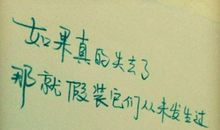 如果真的失去了
那就假装它们从来发生过